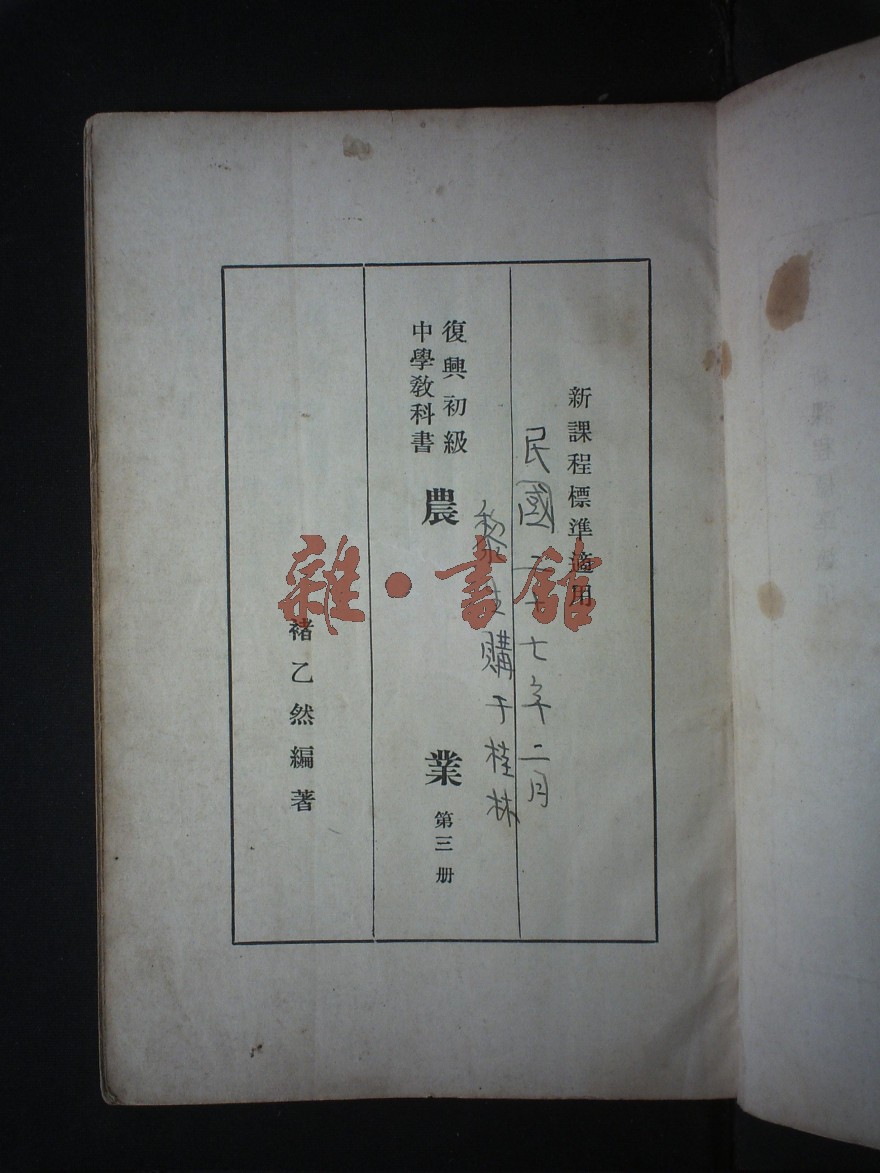 新課程標準適用
民國二十七年二月
黎 購于桂林
復興初級
中學教科書
農業 第三册
褚乙然編著
雜·書館